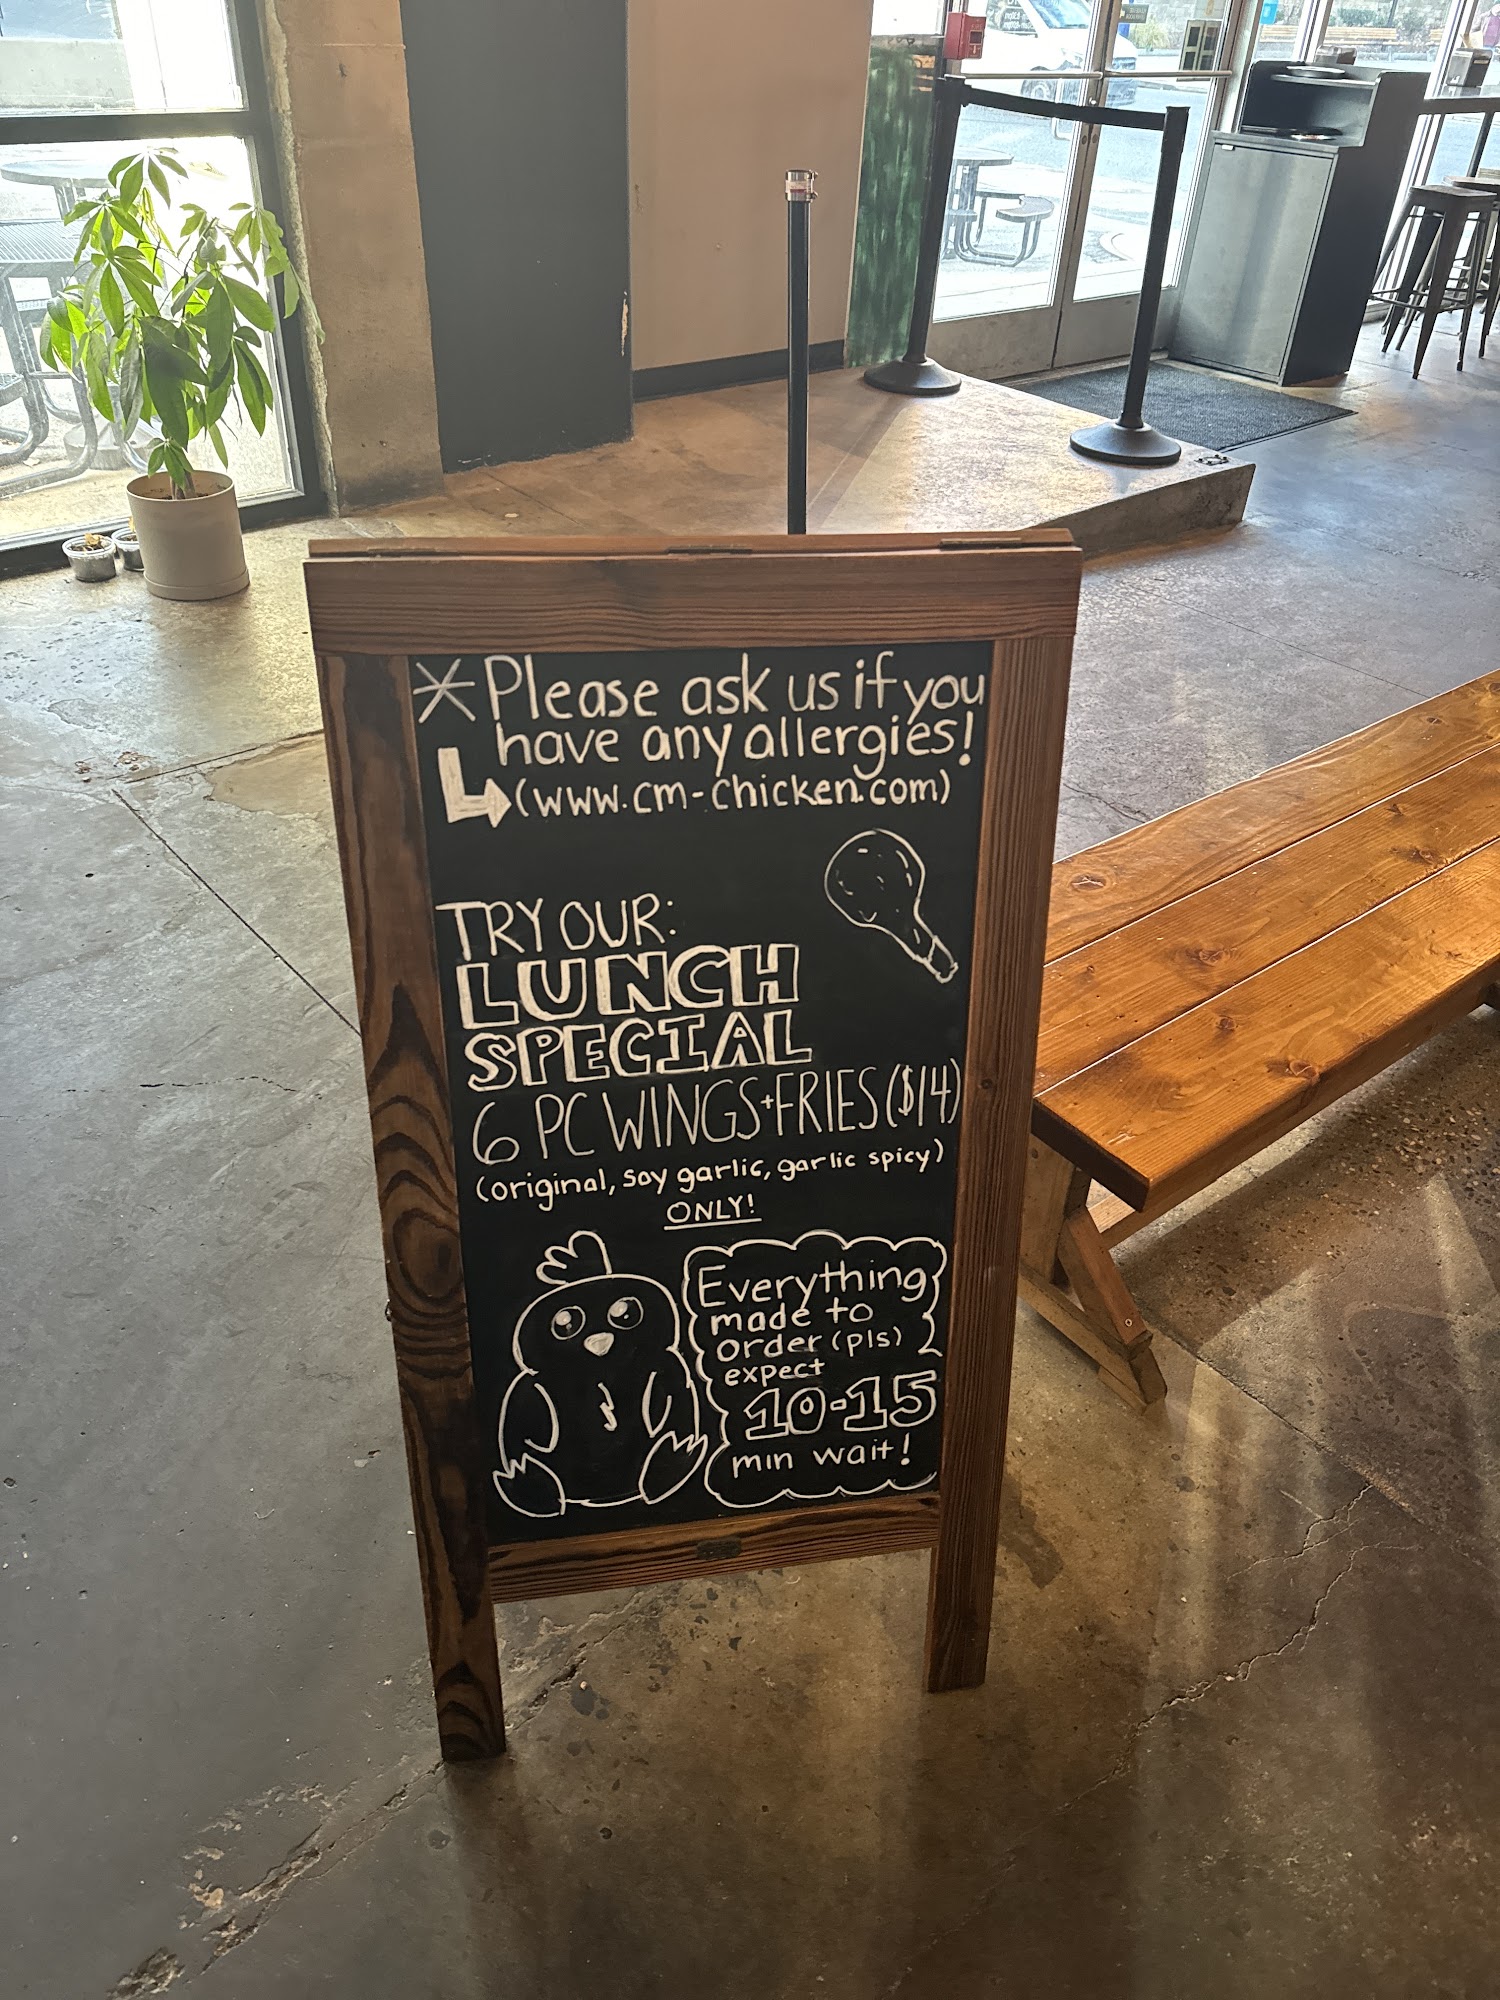 * Please ask us if you
have any allergies!
(www.cm-chicken.com)
TRY OUR:
LUNCH
SPECIAL
6 PC WINGS+FRIES ($14)
(original, soy garlic, garlic spicy)
ONLY!
Everything
made to
order (pls)
expect
10-15
min wait!